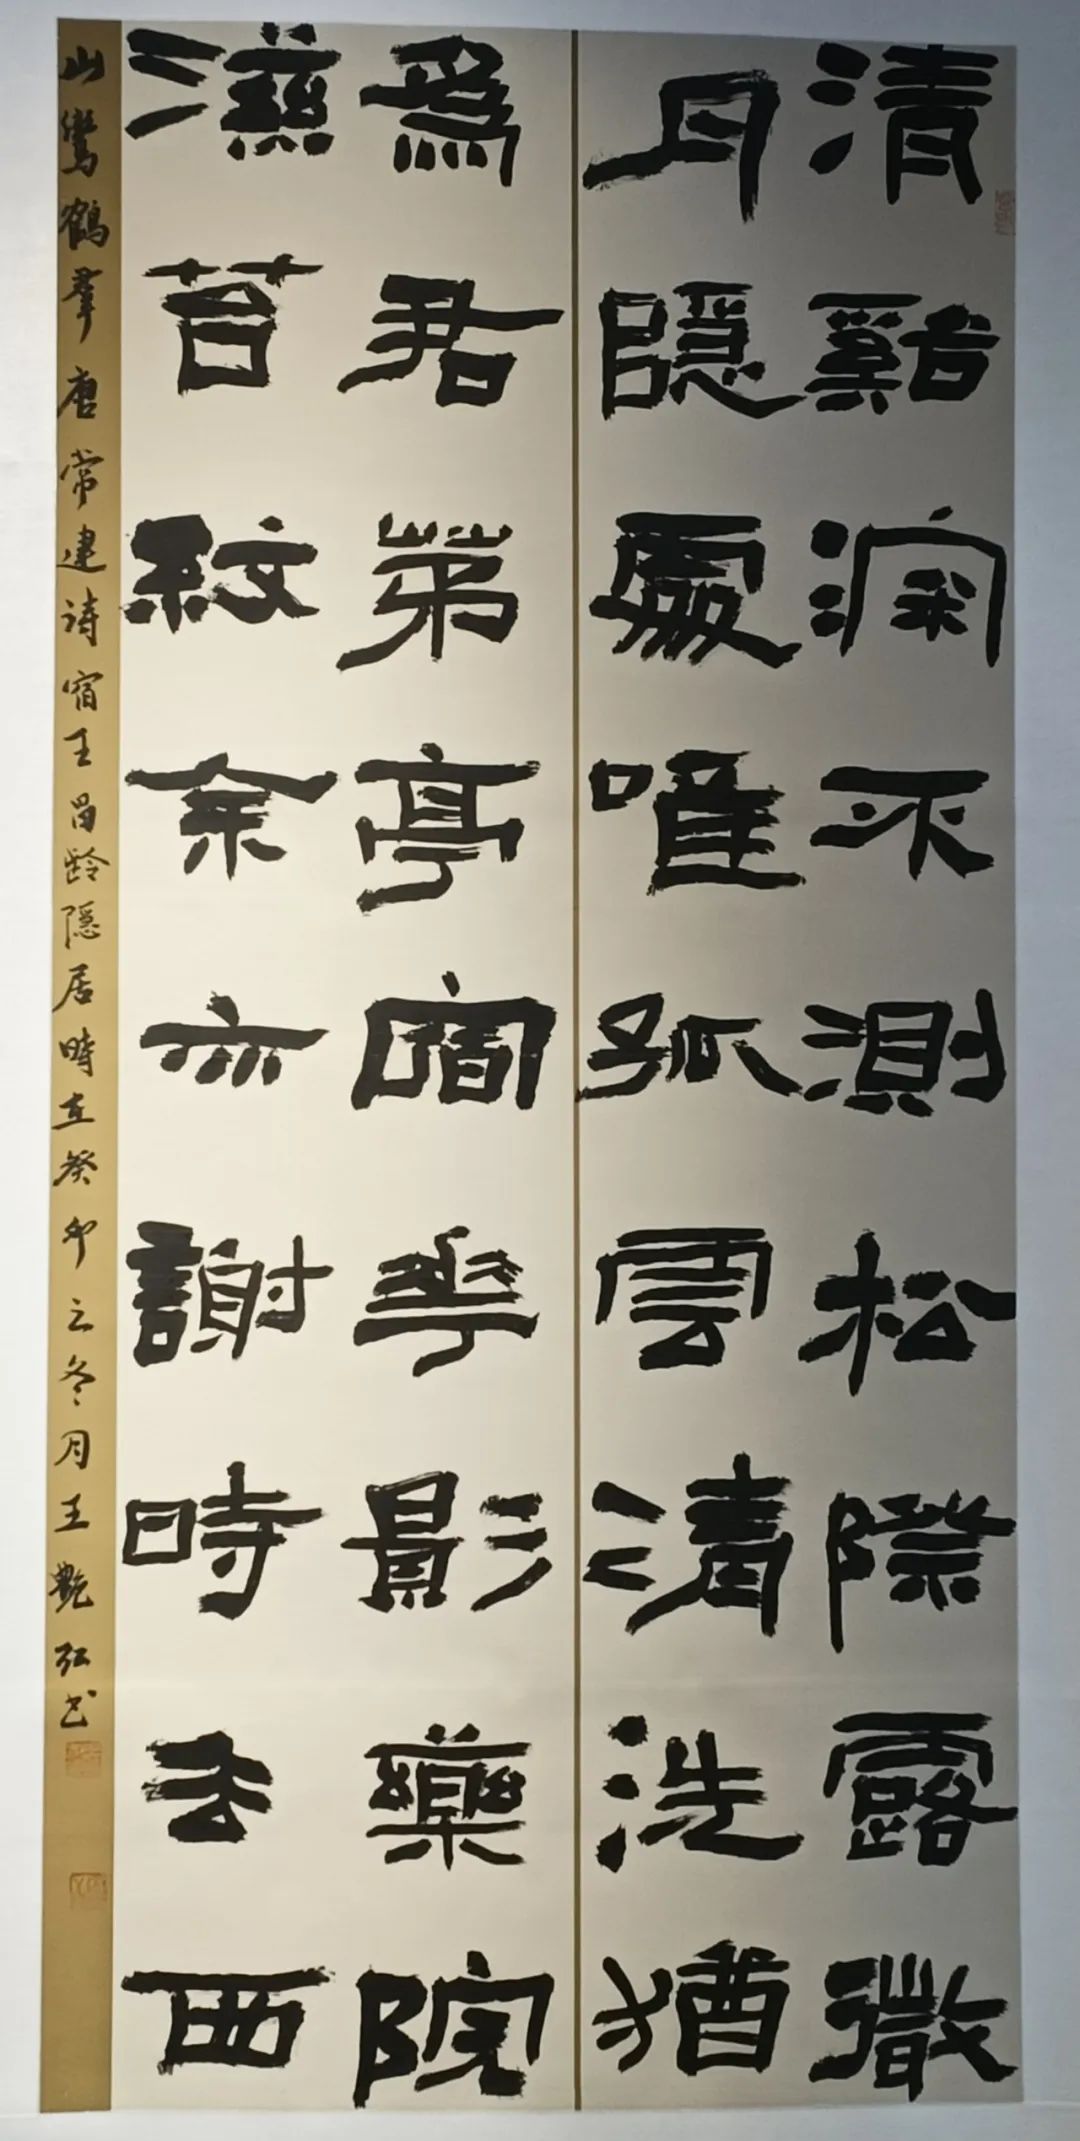 清谿深不測松際露微
月隱處唯孤雲清洗猶
爲君苐亭宿華影藥院
滋苔紋余亦謝時去西
山鸞鶴羣唐常建詩宿王昌齡隱居時在癸卯之冬月王艷弘書